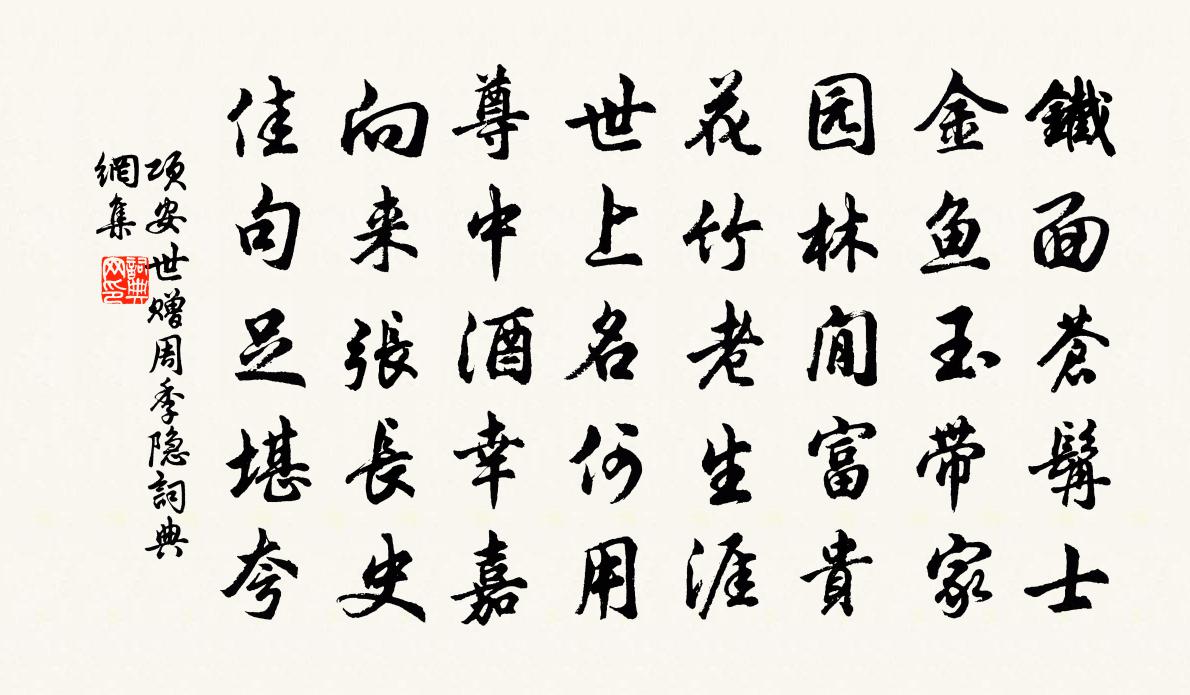 鐵面蒼髯士
金鱼玉带家
园林閒富貴
花竹老生涯
世上名何用
尊中酒幸嘉
向来張長史
佳句足堪夸
项安世赠周季隐詞典
網集
詞典
网印